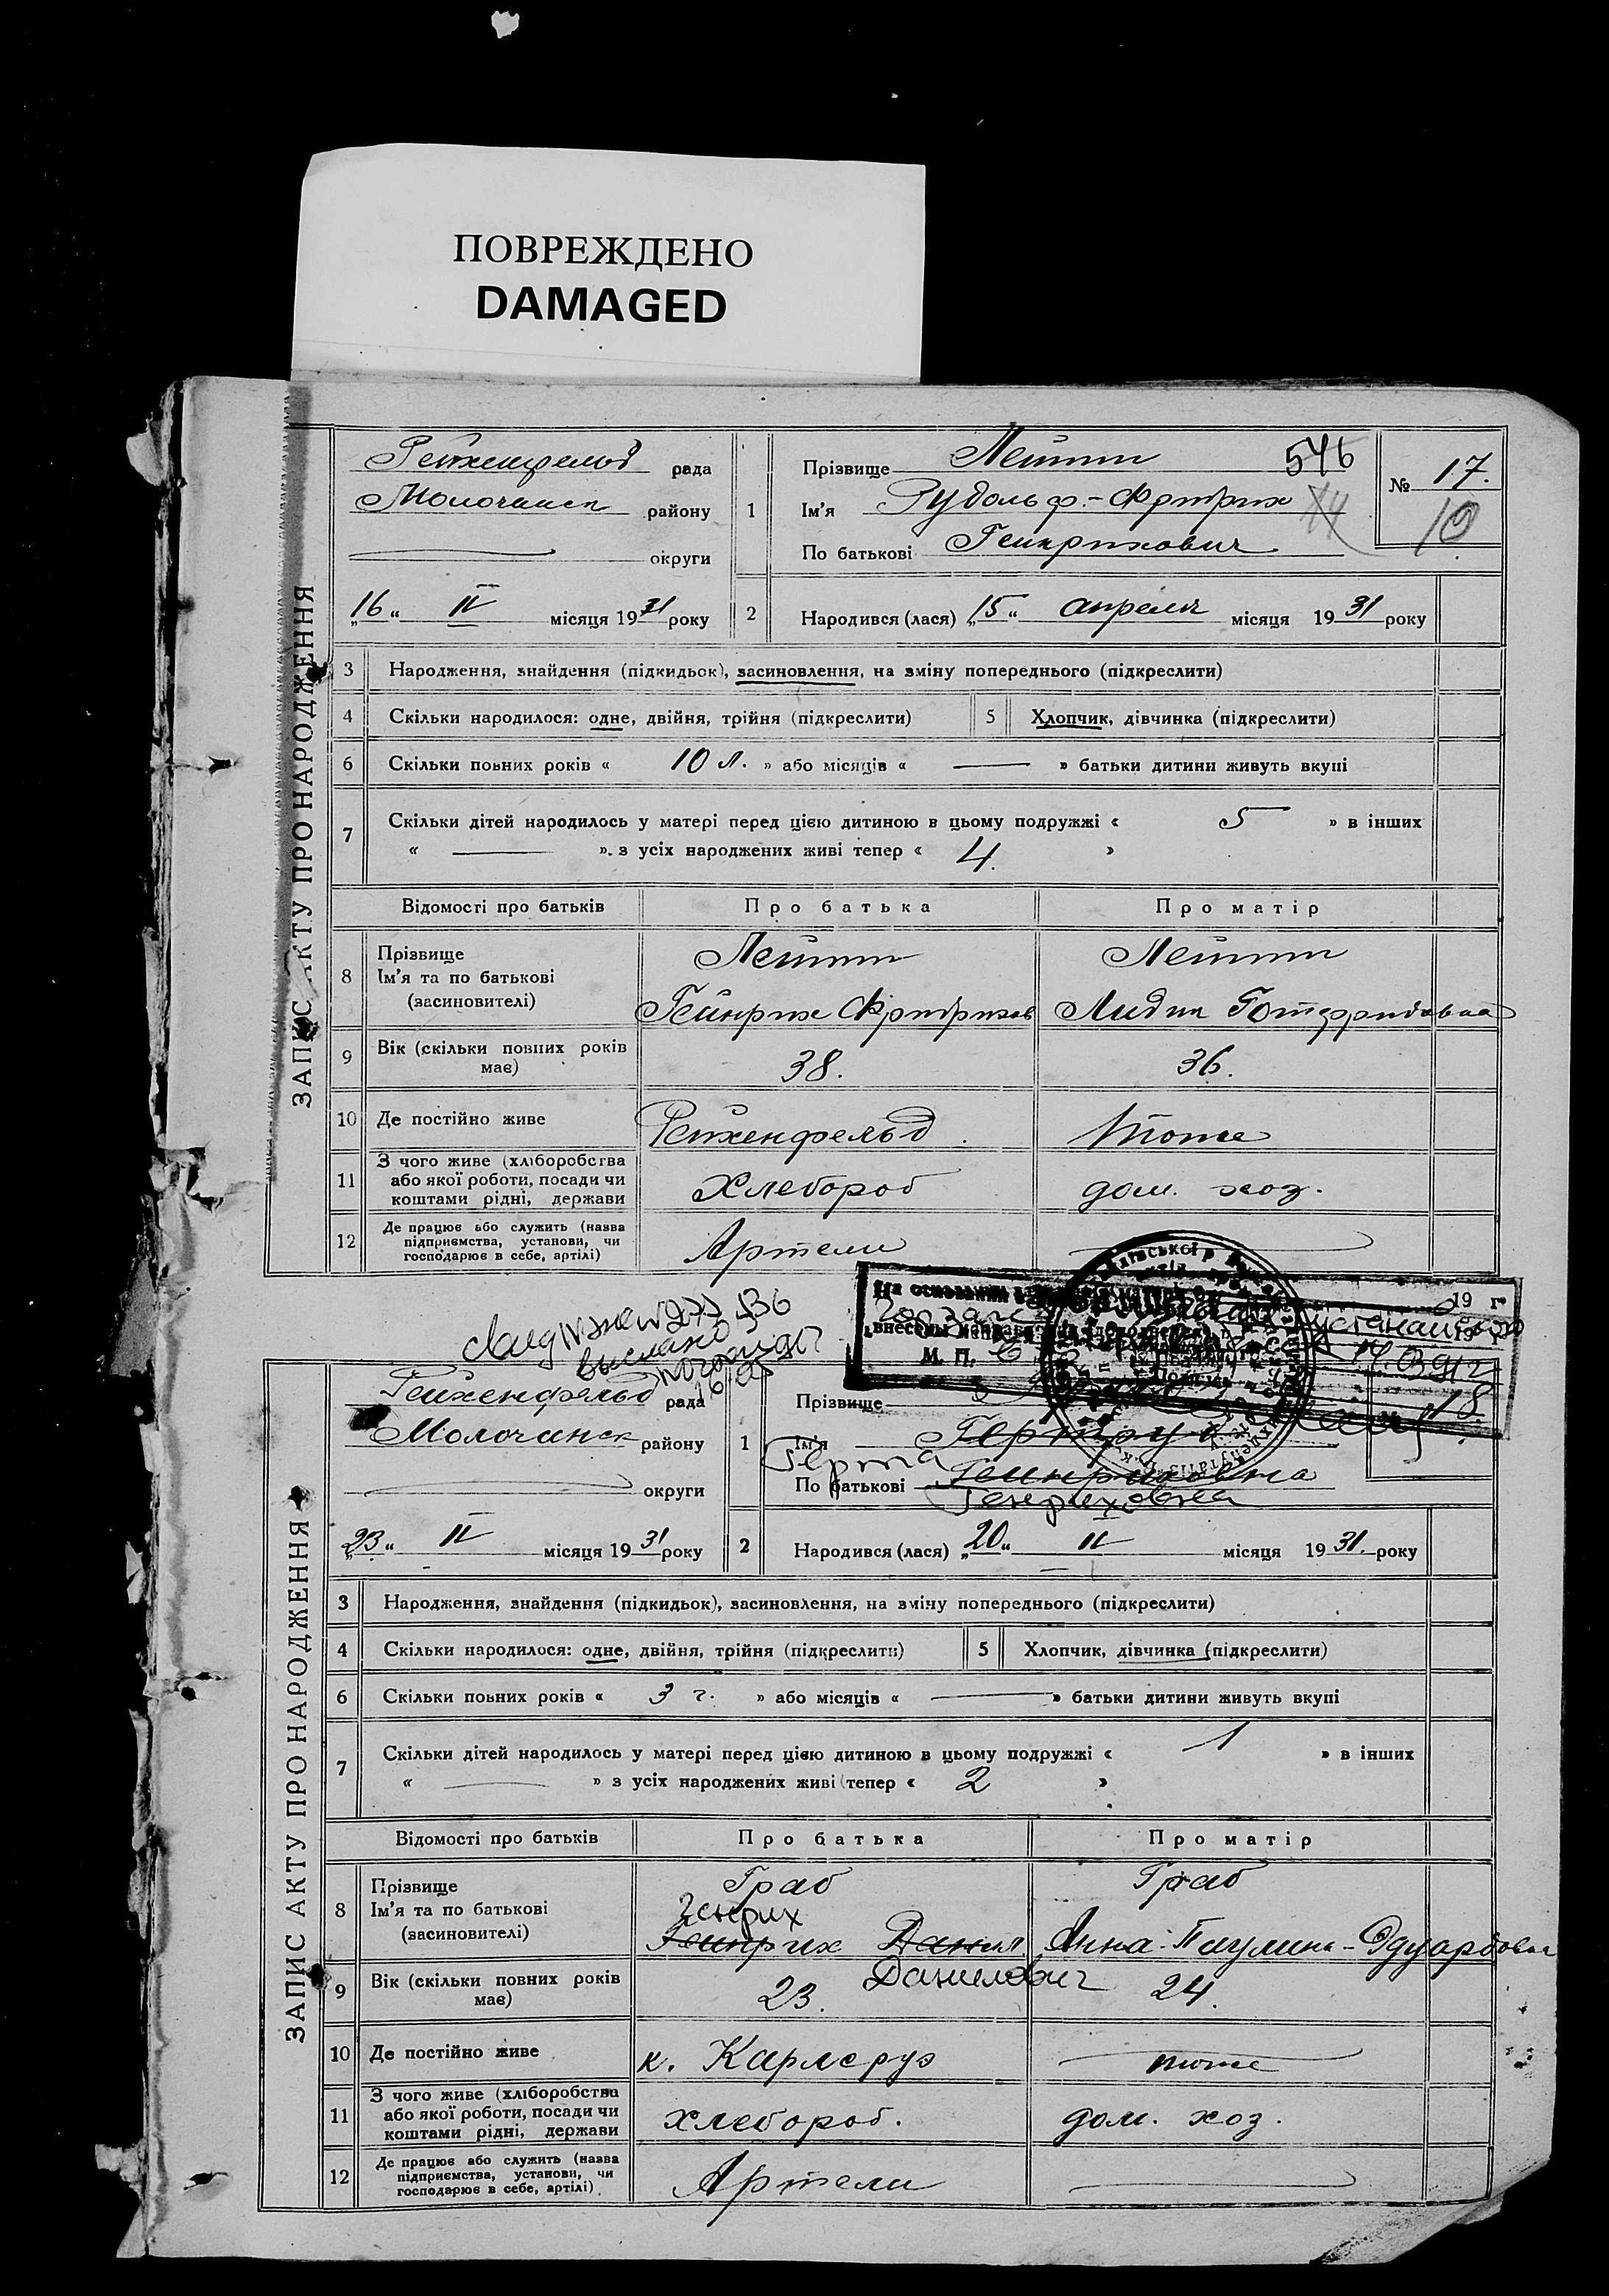 ПОВРЕЖДЕНО
DAMAGED
ЗАПИС АКТУ ПРО НАРОДЖЕННЯ
Рейхенфельд рада
Молочанск району
округи
„16“ IV місяця 1931 року
1
Прізвище Лейтт 546
Ім'я Рудольф-Фридрих 74
По батькові Гейнрихович
№ 17.
10
2 Народився (лася) „15“ апреля місяця 1931 року
3 Народження, знайдення (підкидьок), засиновлення, на зміну попереднього (підкреслити)
4 Скільки народилося: одне, двійня, трійня (підкреслити) 5 Хлопчик, дівчинка (підкреслити)
6 Скільки повних років « 10 л. » або місяців « — » батьки дитини живуть вкупі
7 Скільки дітей народилось у матері перед цією дитиною в цьому подружжі « 5 » в інших
« — ». з усіх народжених живі тепер « 4. »
Відомості про батьків Про батька Про матір
8 Прізвище Лейтт Лейтт
Ім'я та по батькові
(засиновителі) Гейнрих Фридрихов Лидия Готфридовна
9 Вік (скільки повних років має) 38. 36.
10 Де постійно живе Рейхенфельд. тоже
11 З чого живе (хліборобства
або якої роботи, посади чи хлебороб дом. хоз.
коштами рідні, держави
12 Де працює або служить (назва
підприємства, установи, чи Артели
господарює в себе, артілі)
На основании 19 г.
внесены
М. П.
выслано
ЗАПИС АКТУ ПРО НАРОДЖЕННЯ
Рейхенфельд рада
Молочанск району
округи
„23“ IV місяця 1931 року
1
Прізвище
Ім'я Гертруд
Герта
По батькові Гейнриховна
Генриховна
18.
2 Народився (лася) „20“ IV місяця 1931. року
3 Народження, знайдення (підкидьок), засиновлення, на зміну попереднього (підкреслити)
4 Скільки народилося: одне, двійня, трійня (підкреслити) 5 Хлопчик, дівчинка (підкреслити)
6 Скільки повних років « 3 г. » або місяців « — » батьки дитини живуть вкупі
7 Скільки дітей народилось у матері перед цією дитиною в цьому подружжі « 1 » в інших
« — » з усіх народжених живі тепер « 2 »
Відомості про батьків Про батька Про матір
8 Прізвище Граб Граб
Ім'я та по батькові Генрих
(засиновителі) Гейнрих Данил Анна-Паулина-Эдуардовна
Данилович
9 Вік (скільки повних років має) 23. 24.
10 Де постійно живе к. Карлсруэ тоже
11 З чого живе (хліборобства
або якої роботи, посади чи хлебороб. дом. хоз.
коштами рідні, держави
12 Де працює або служить (назва
підприємства, установи, чи Артели
господарює в себе, артілі)